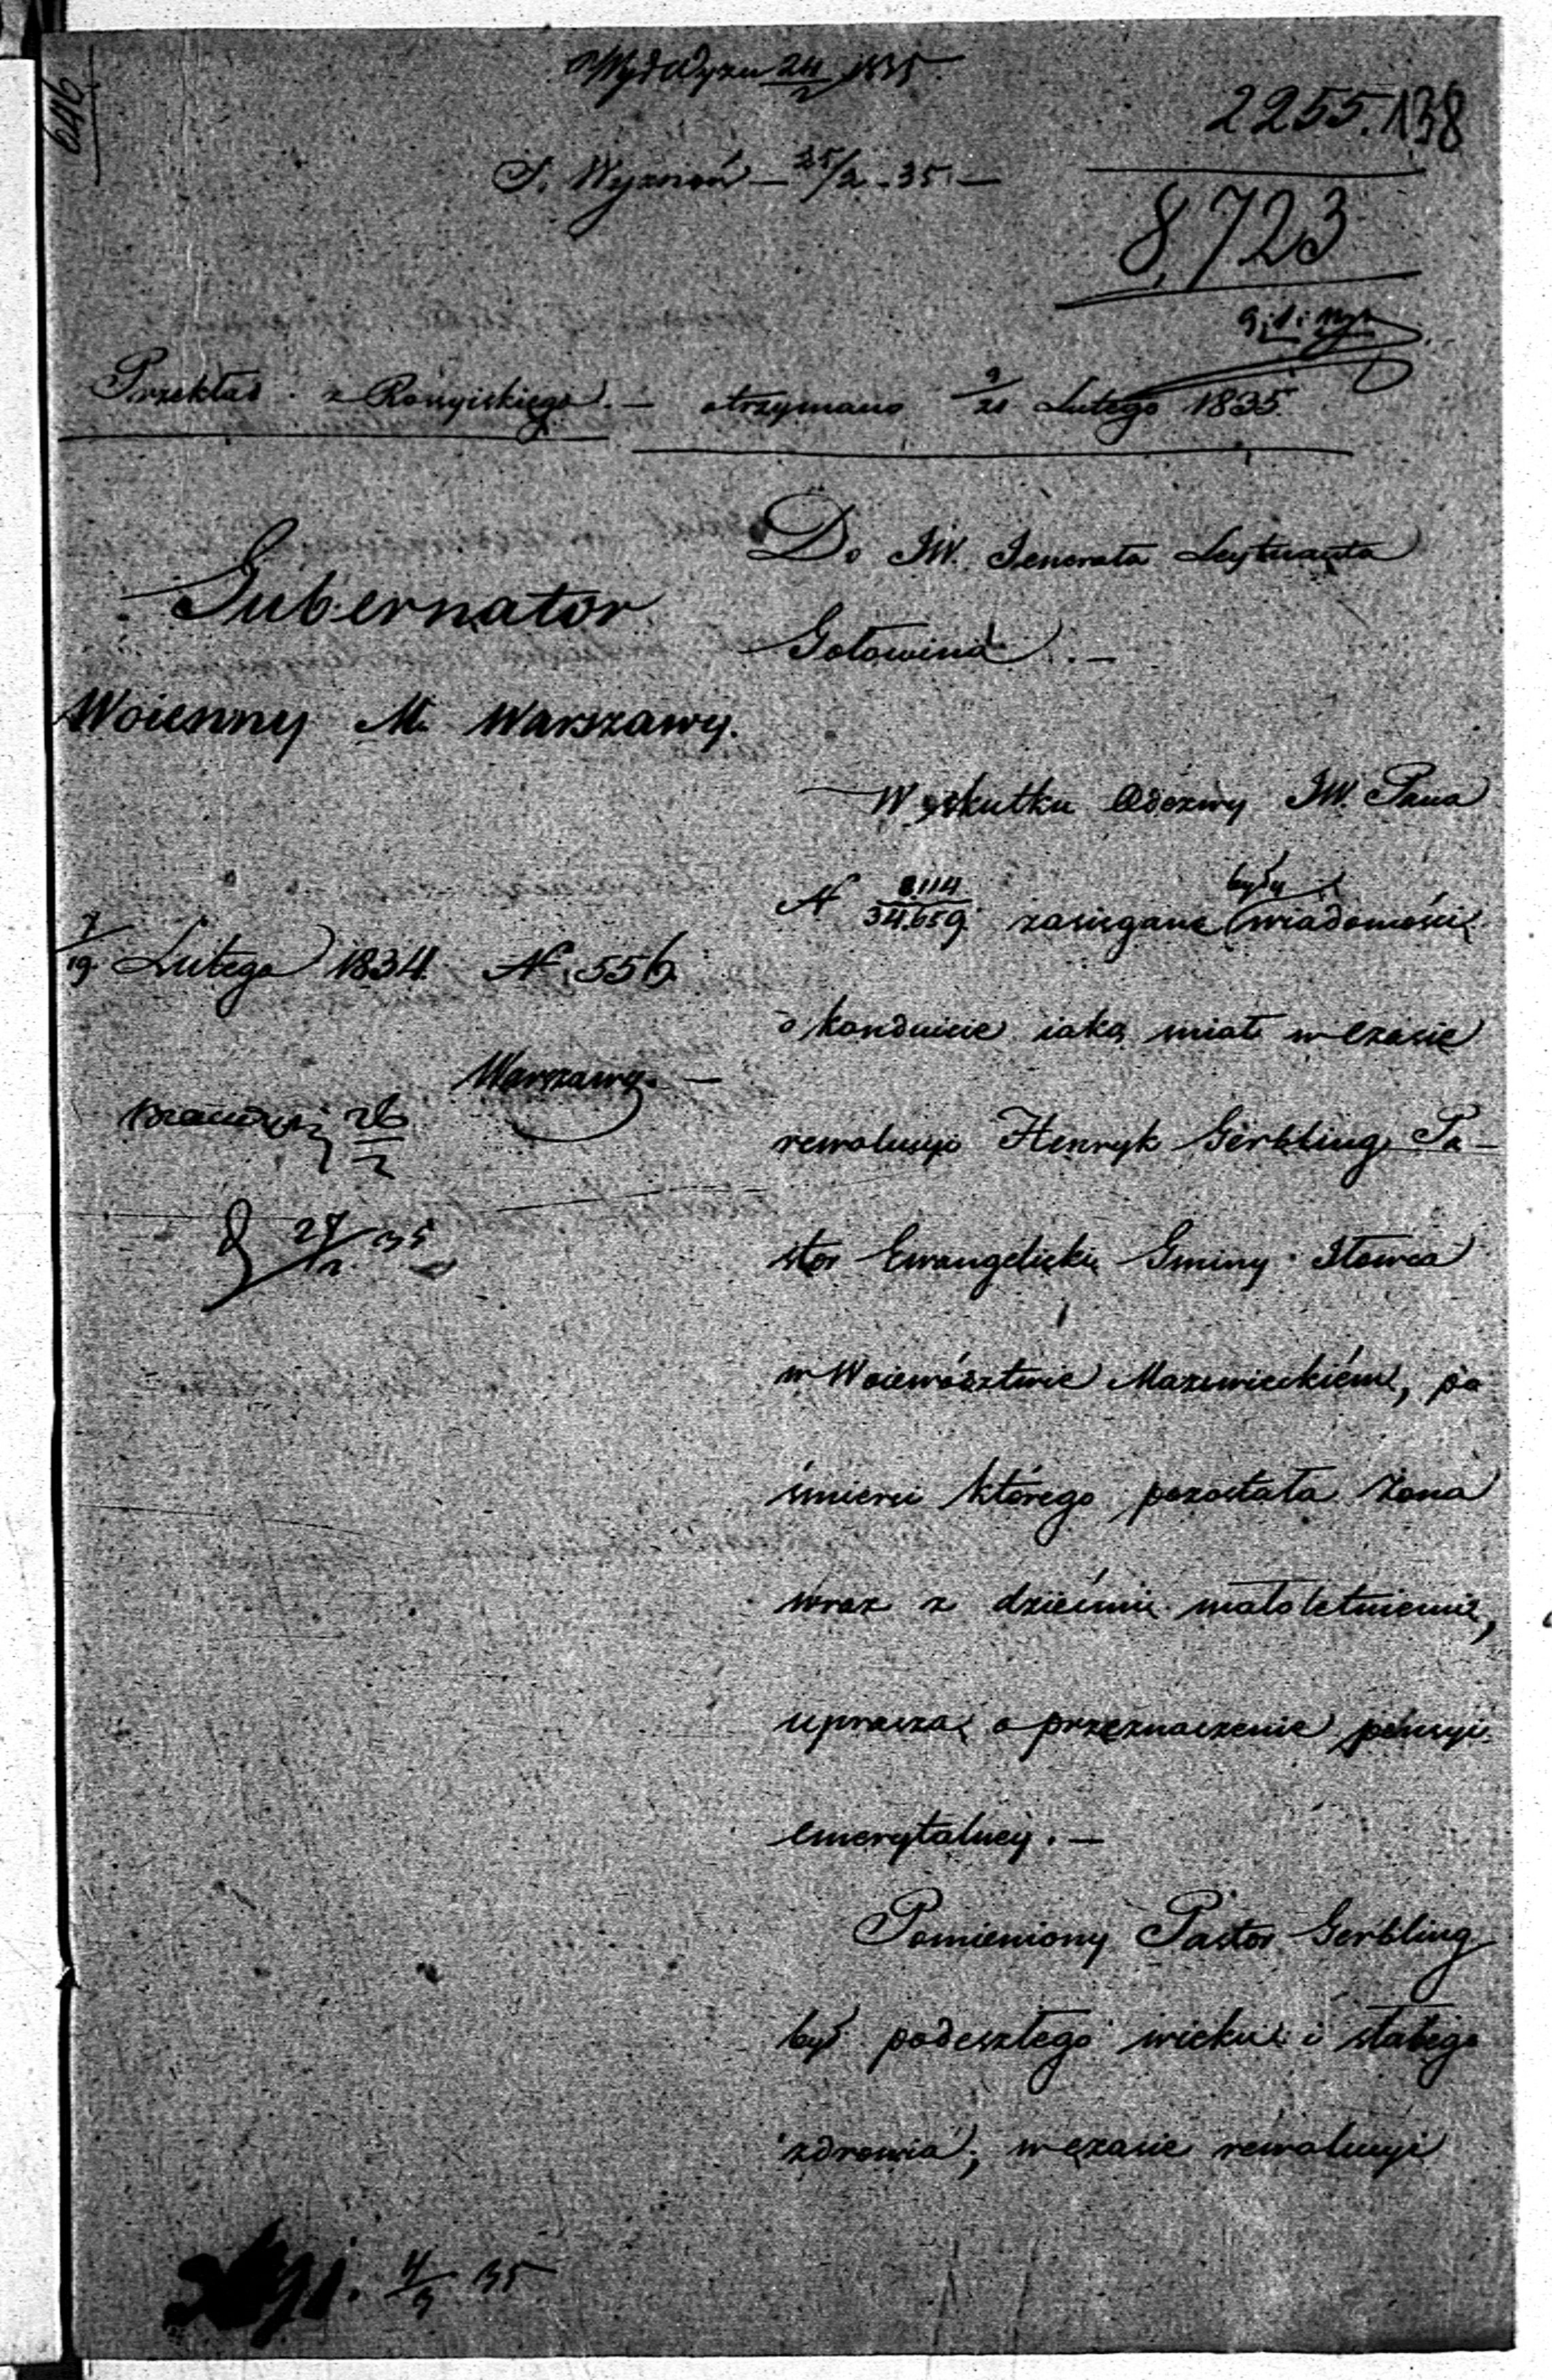 646
24/2 1835.
2255.138
S. Wyznań – 25/2 – 35. –
8,723
Przekład z Rossyiskiego. – otrzymano 9/21 Lutego 1835.
Do JW. Jenerała Leytnanta
Gubernator
Gołowina. –
Woienny M. Warszawy.
W skutku Odezwy JW. Pana
były
N 8114/34,659. zasięgane wiadomości
7/19 Lutego 1834. N. 556.
o konduicie iaką miał w czasie
Warszawa. –
26/2
rewolucyi Henryk Gerbling Pa-
27/2 35
stor Ewangelicki Gminy Iłowca
w Woiewództwie Mazowieckiém, po
śmierci którego pozostała Żona
wraz z dziećmi małoletniemi,
uprasza o przeznaczenie pensyi
emerytalney. –
Pomieniony Pastor Gerbling
był podeszłego wieku i słabego
zdrowia, w czasie rewolucyi
4/3 35